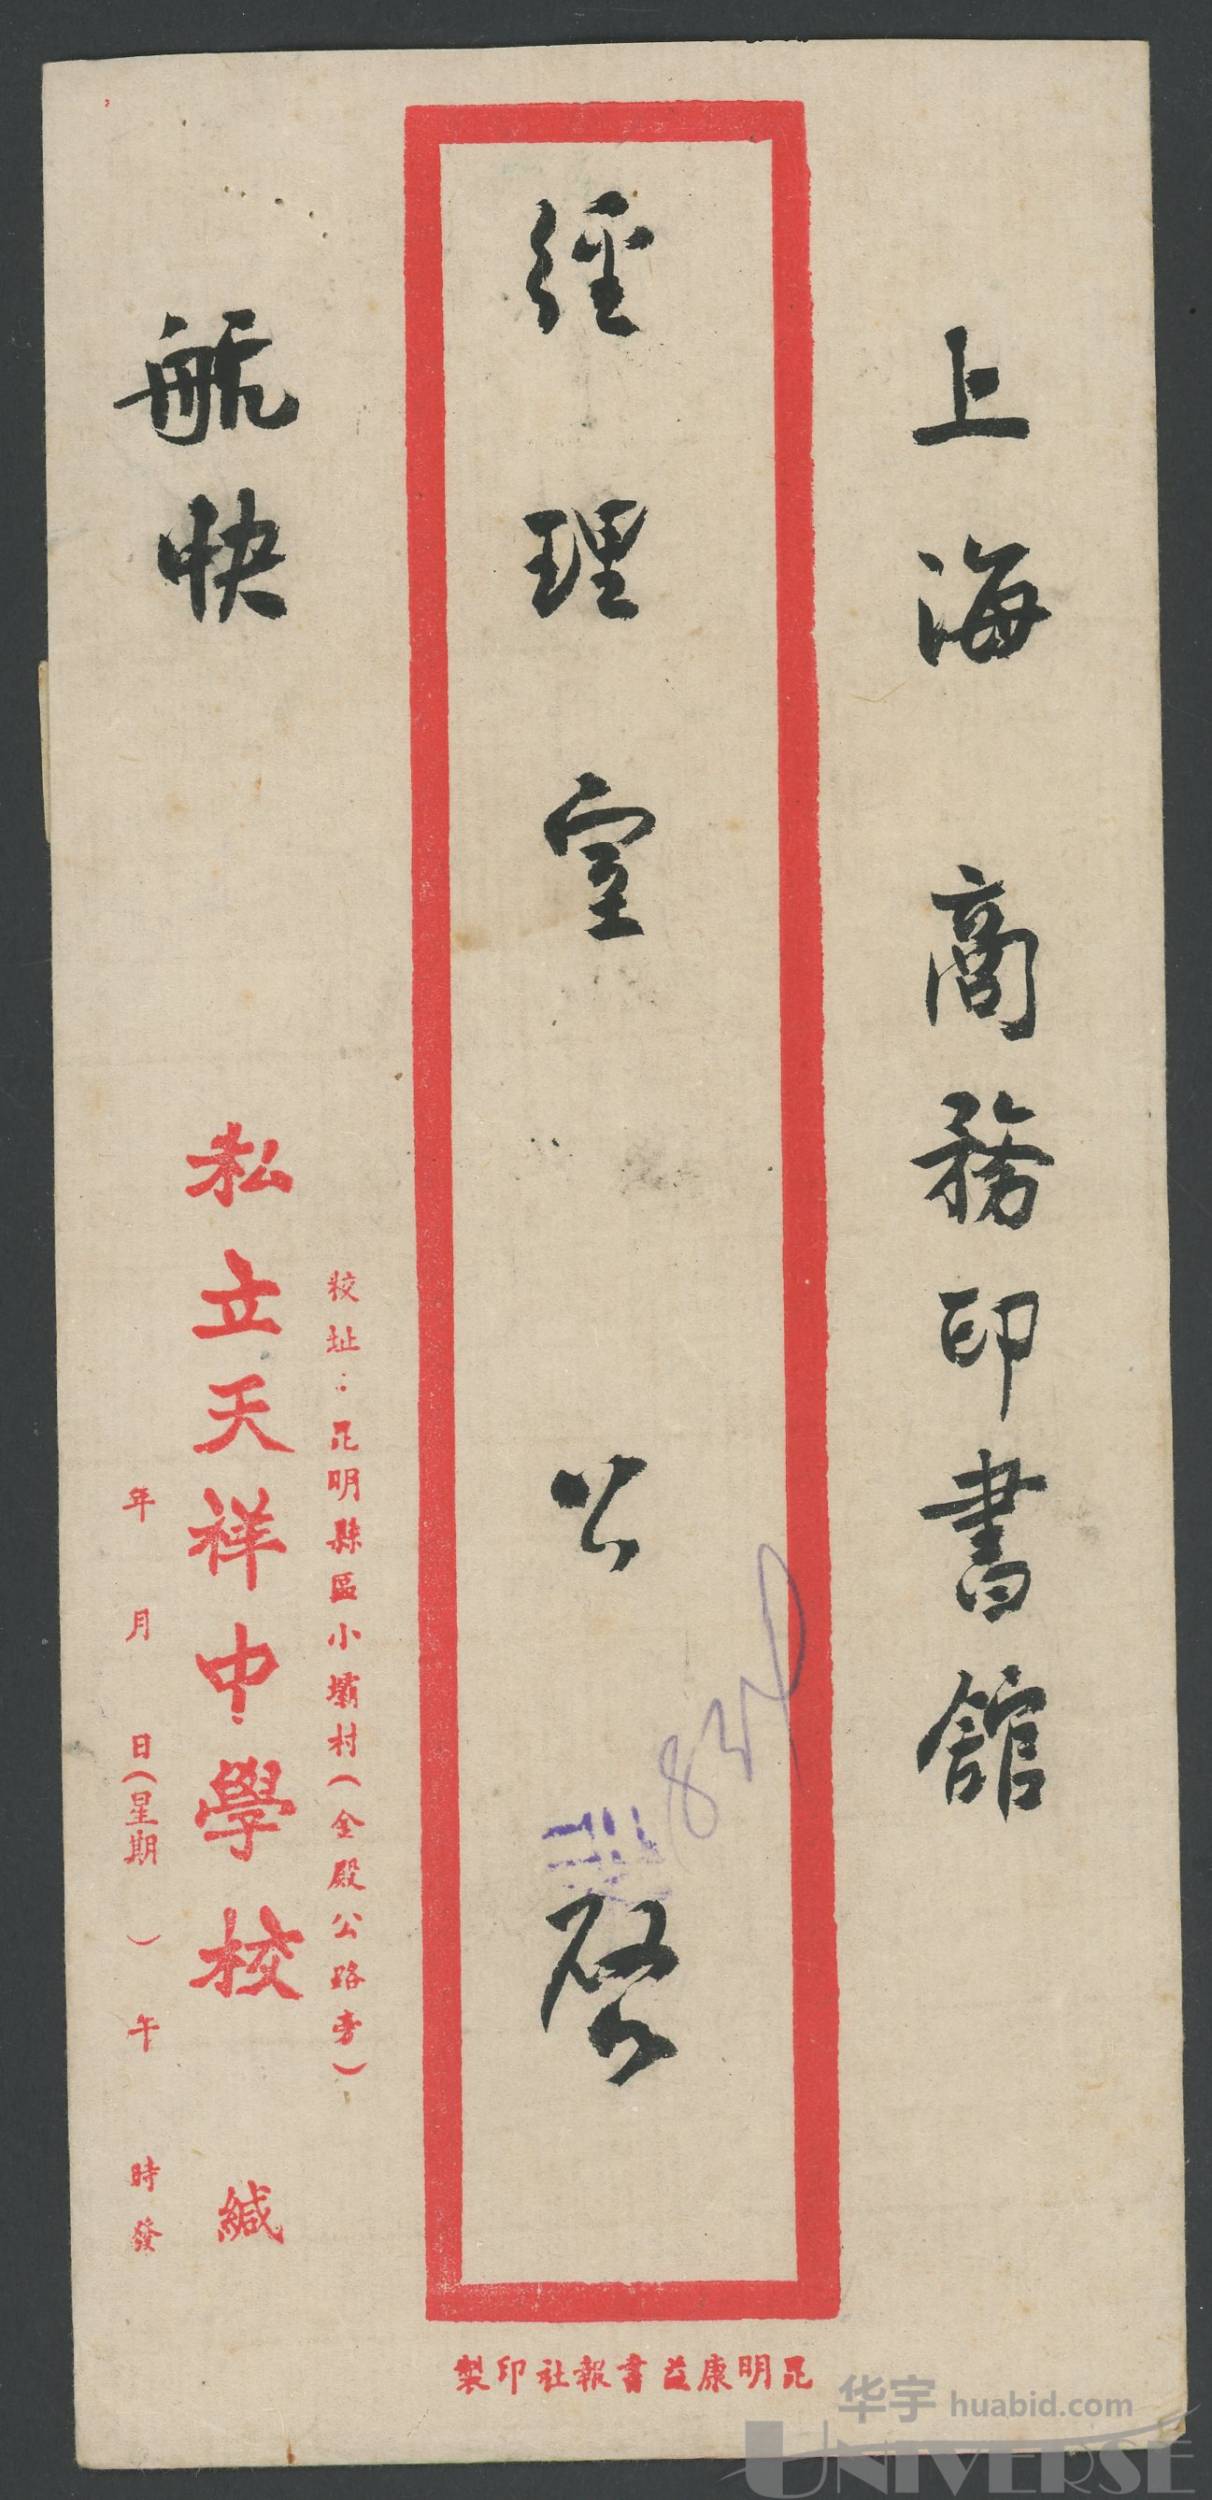 上海 商務印書館
經理室 公啓
航快
校址：昆明縣區小壩村（金殿公路旁）
私立天祥中學校 緘
年 月 日（星期 ）午 時發
昆明康益書報社印製
華宇 huabid.com
UNIVERSE